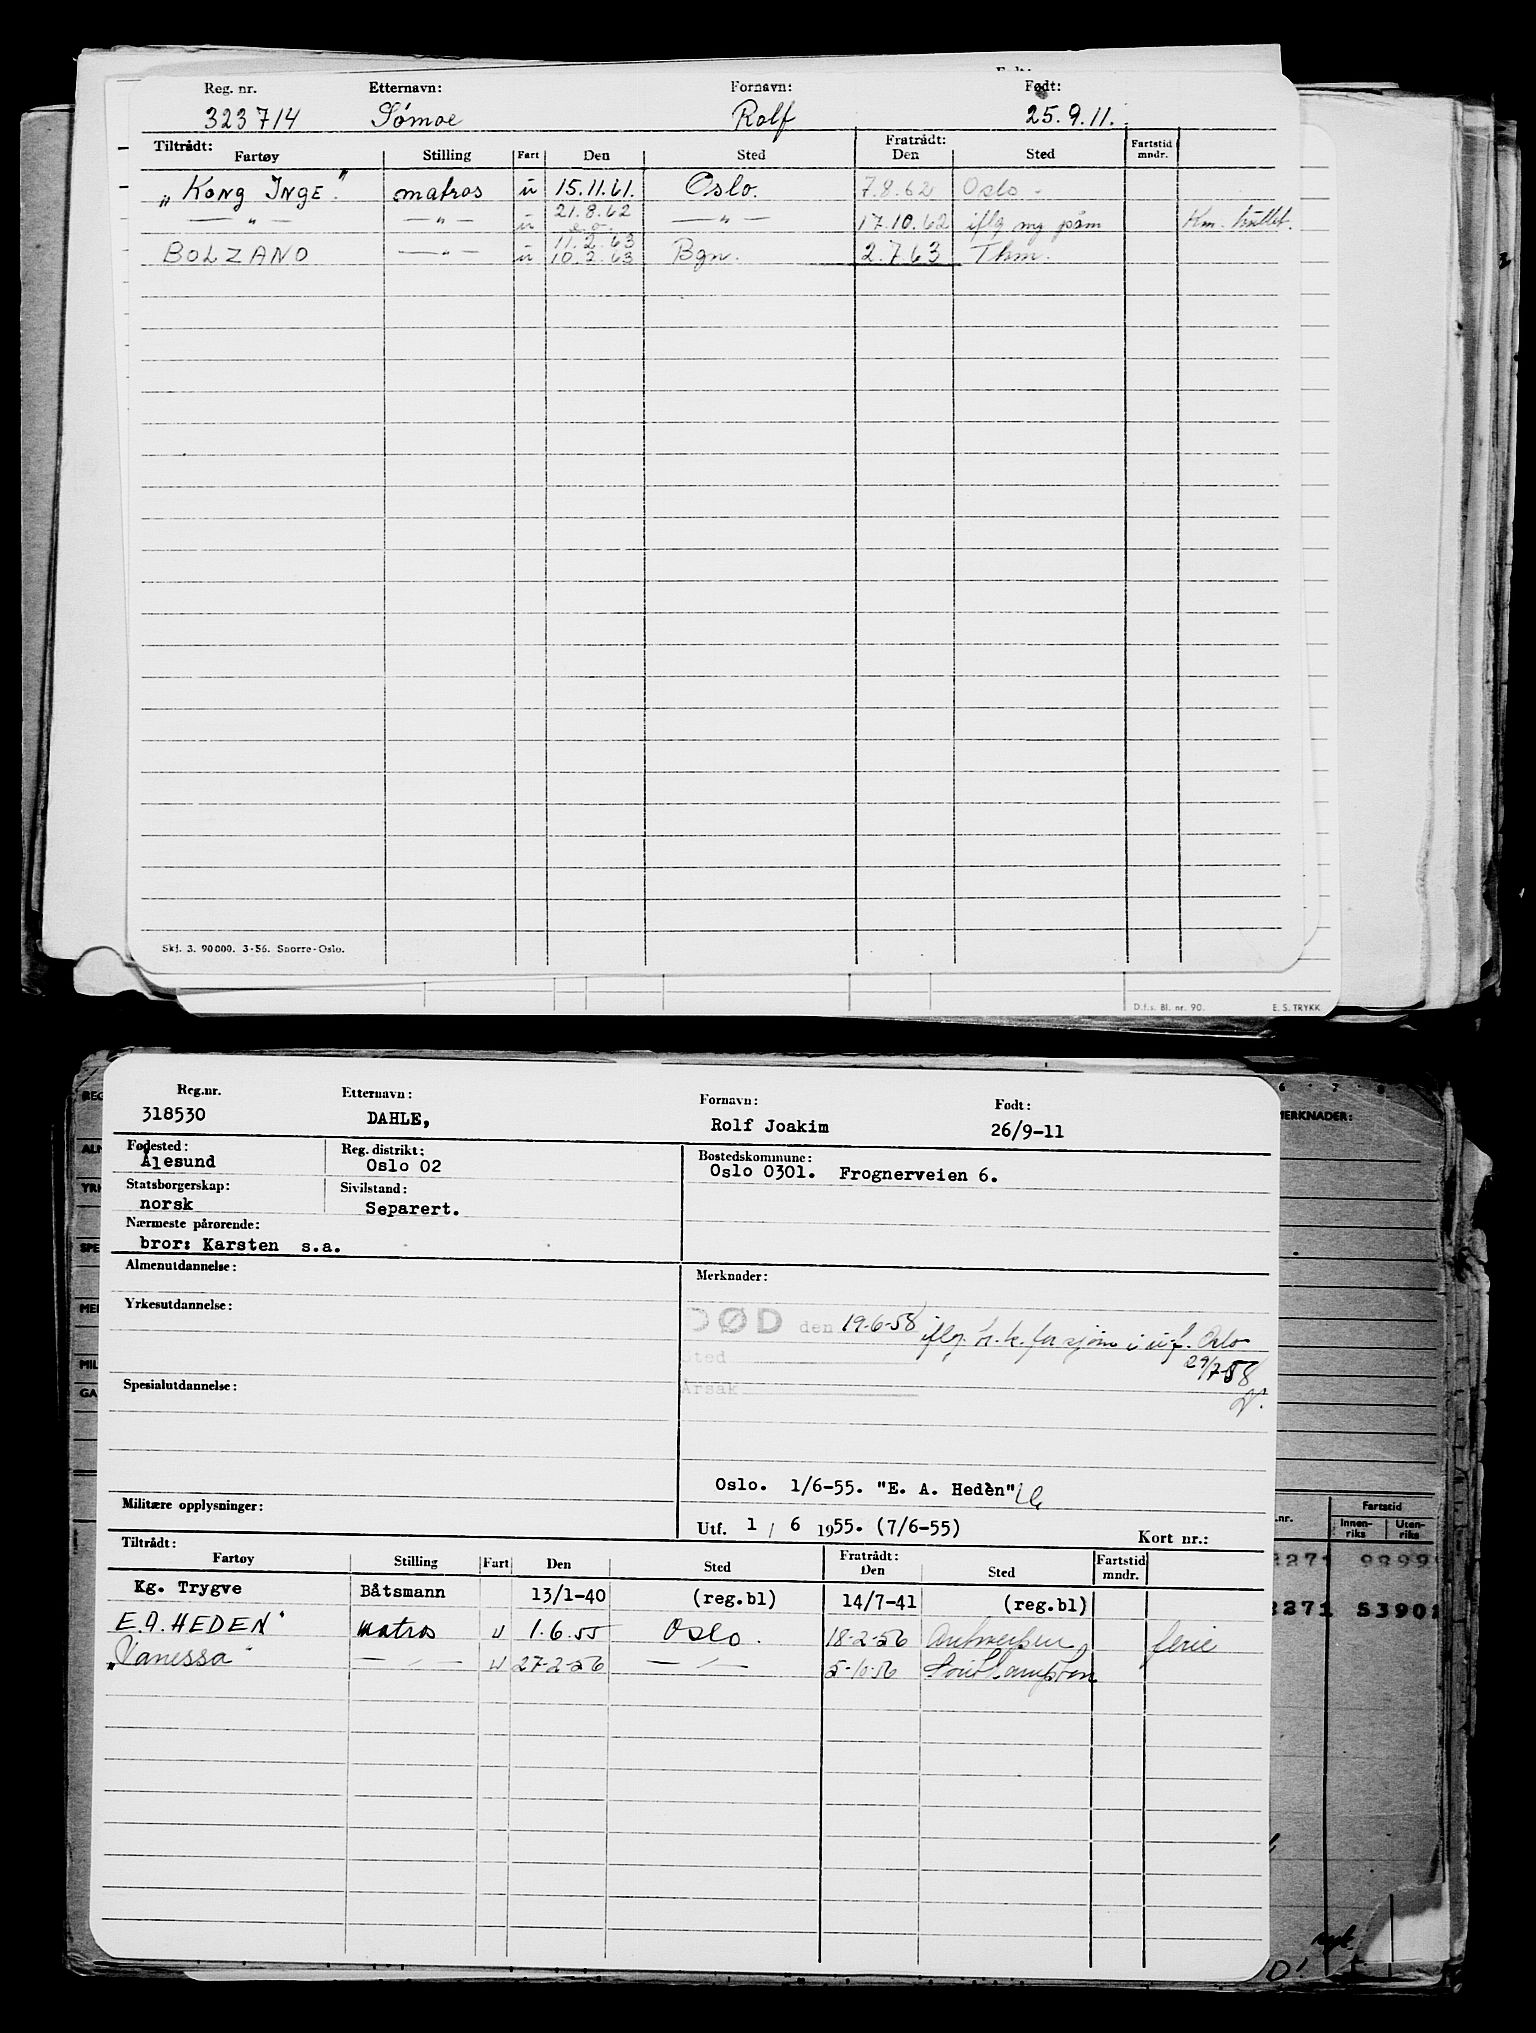 Reg. nr. Etternavn: Fornavn: Født:
323714 Sømoe Rolf 25.9.11.
Tiltrådt: Fratrådt:
Fartøy Stilling Fart Den Sted Den Sted Fartstid mndr.
„Kong Inge." matros u 15.11.61. Oslo. 7.8.62 Oslo.
— " — — " — u 21.8.62 — " — 17.10.62 iflg
BOLZANO — " — u 11.2.63 10.2.63 Bgn. 2.7.63 Thm.
Skj. 3. 90000. 3-56. Snorre-Oslo.
D.f.s. Bl. nr. 90. E. S. TRYKK
Reg.nr. Etternavn: Fornavn: Født:
318530 DAHLE, Rolf Joakim 26/9-11
Fødested: Reg. distrikt: Bostedskommune:
Ålesund Oslo 02 Oslo 0301. Frognerveien 6.
Statsborgerskap: Sivilstand:
norsk Separert.
Nærmeste pårørende:
bror: Karsten s.a.
Almenutdannelse: Merknader:
Yrkesutdannelse:
DØD den 19-6-58 iflg. Oslo
Sted 29/7-58
Årsak
Spesialutdannelse:
Oslo. 1/6-55. "E. A. Hedèn"
Militære opplysninger:
Utf. 1 / 6 1955. (7/6-55) Kort nr.:
Tiltrådt: Fratrådt:
Fartøy Stilling Fart Den Sted Den Sted Fartstid mndr.
Kg. Trygve Båtsmann 13/1-40 (reg.bl) 14/7-41 (reg.bl)
E.A. HEDEN" matros u 1.6.55 Oslo. 18-2-56 Antwerpen ferie
„Vanessa" — " — u 27-2-56 — " — 5-10-56 Southampton
MERKNADER:
Fartstid
Innen-riks Uten-riks